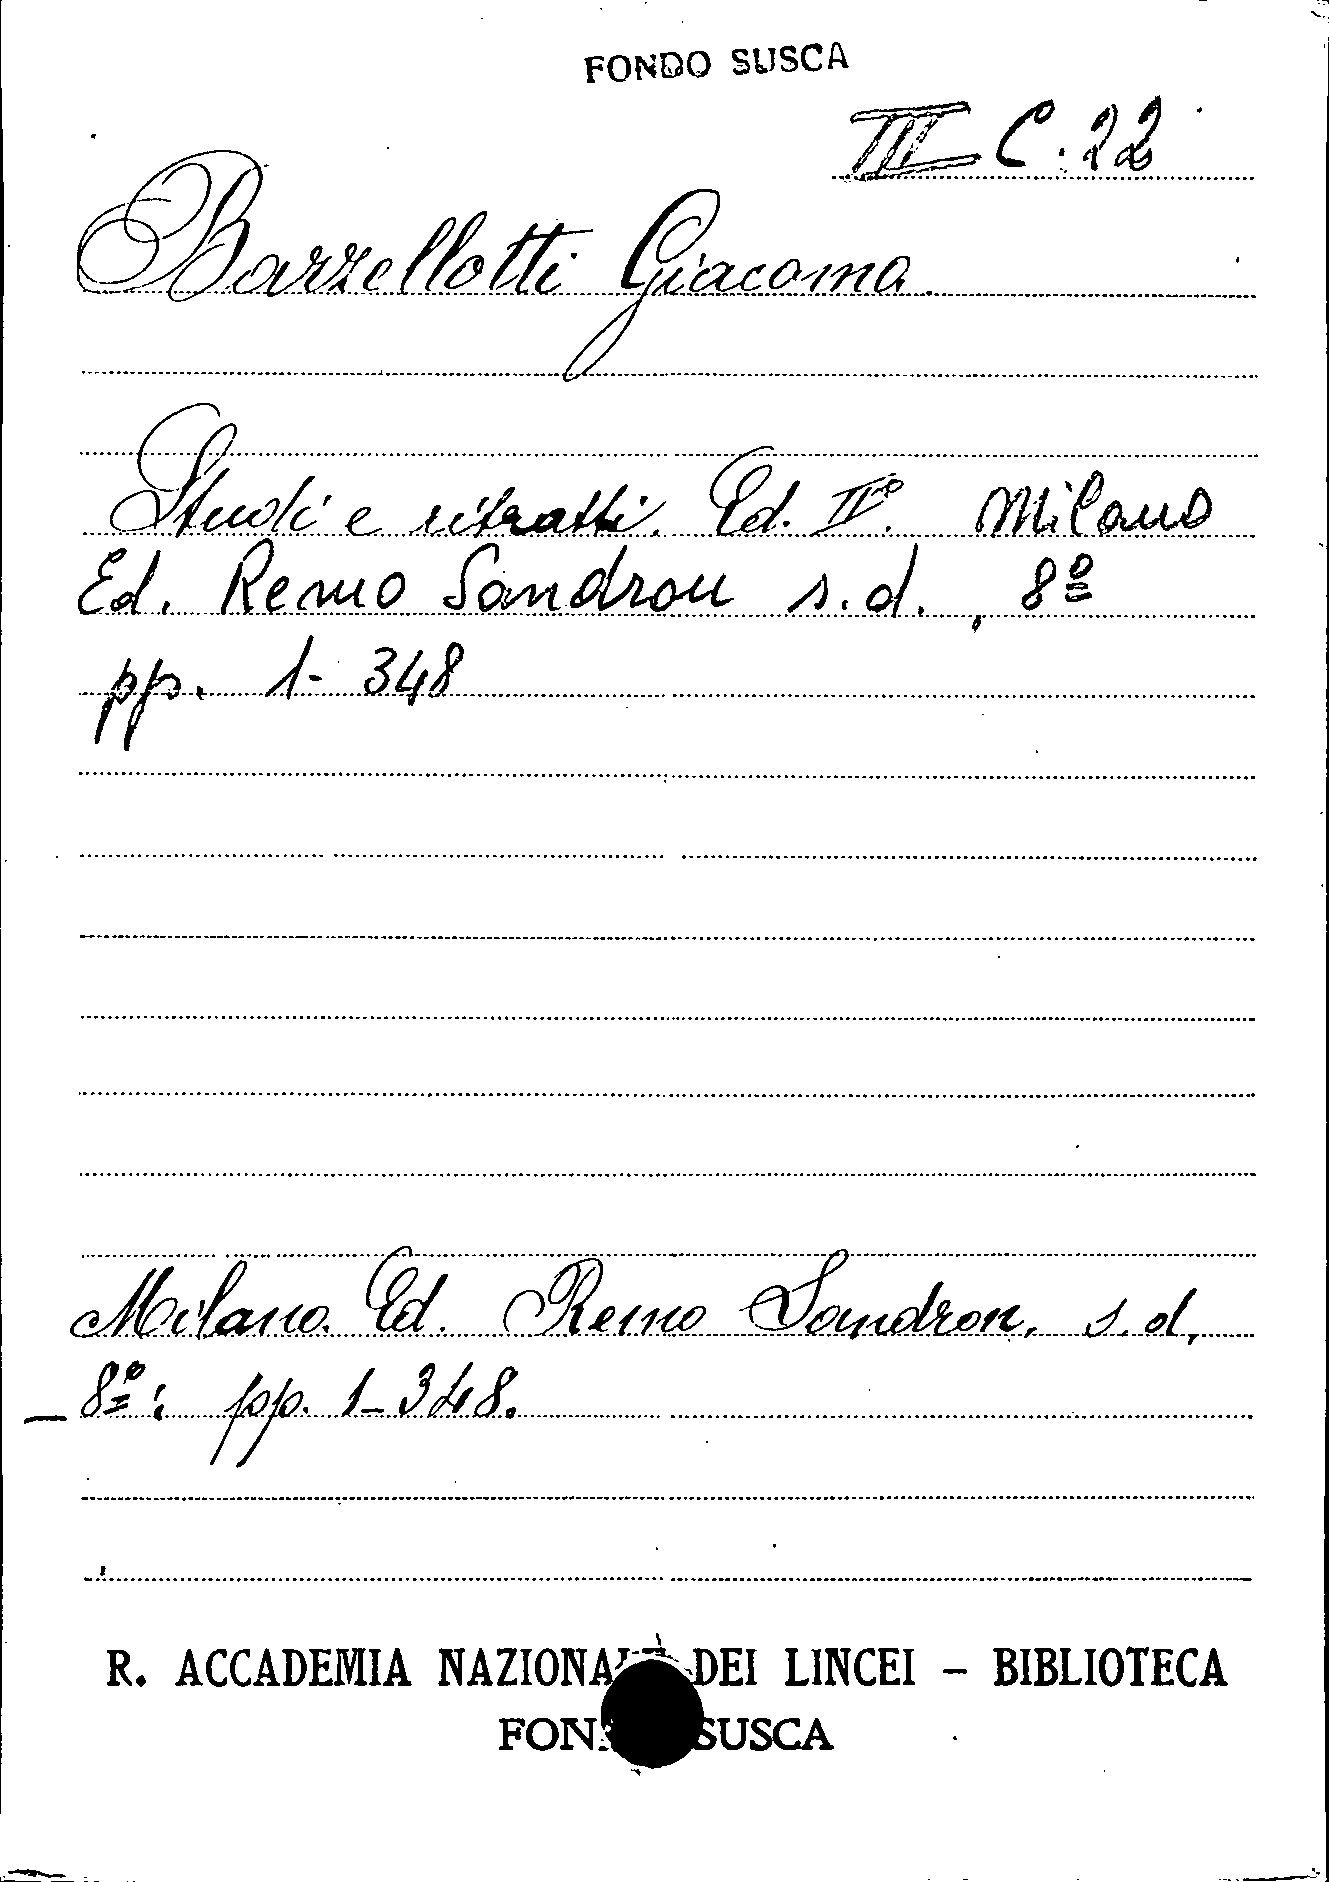 FONDO SUSCA
III C. 22
Barzellotti Giacomo
Studi e ritratti. Ed. IIº. Milano
Ed. Remo Sandron s.d., 8º
pp. 1-348
Milano. Ed. Remo Sandron, s.d,
8º: pp. 1-348.
R. ACCADEMIA NAZIONALE DEI LINCEI – BIBLIOTECA
FONDO SUSCA